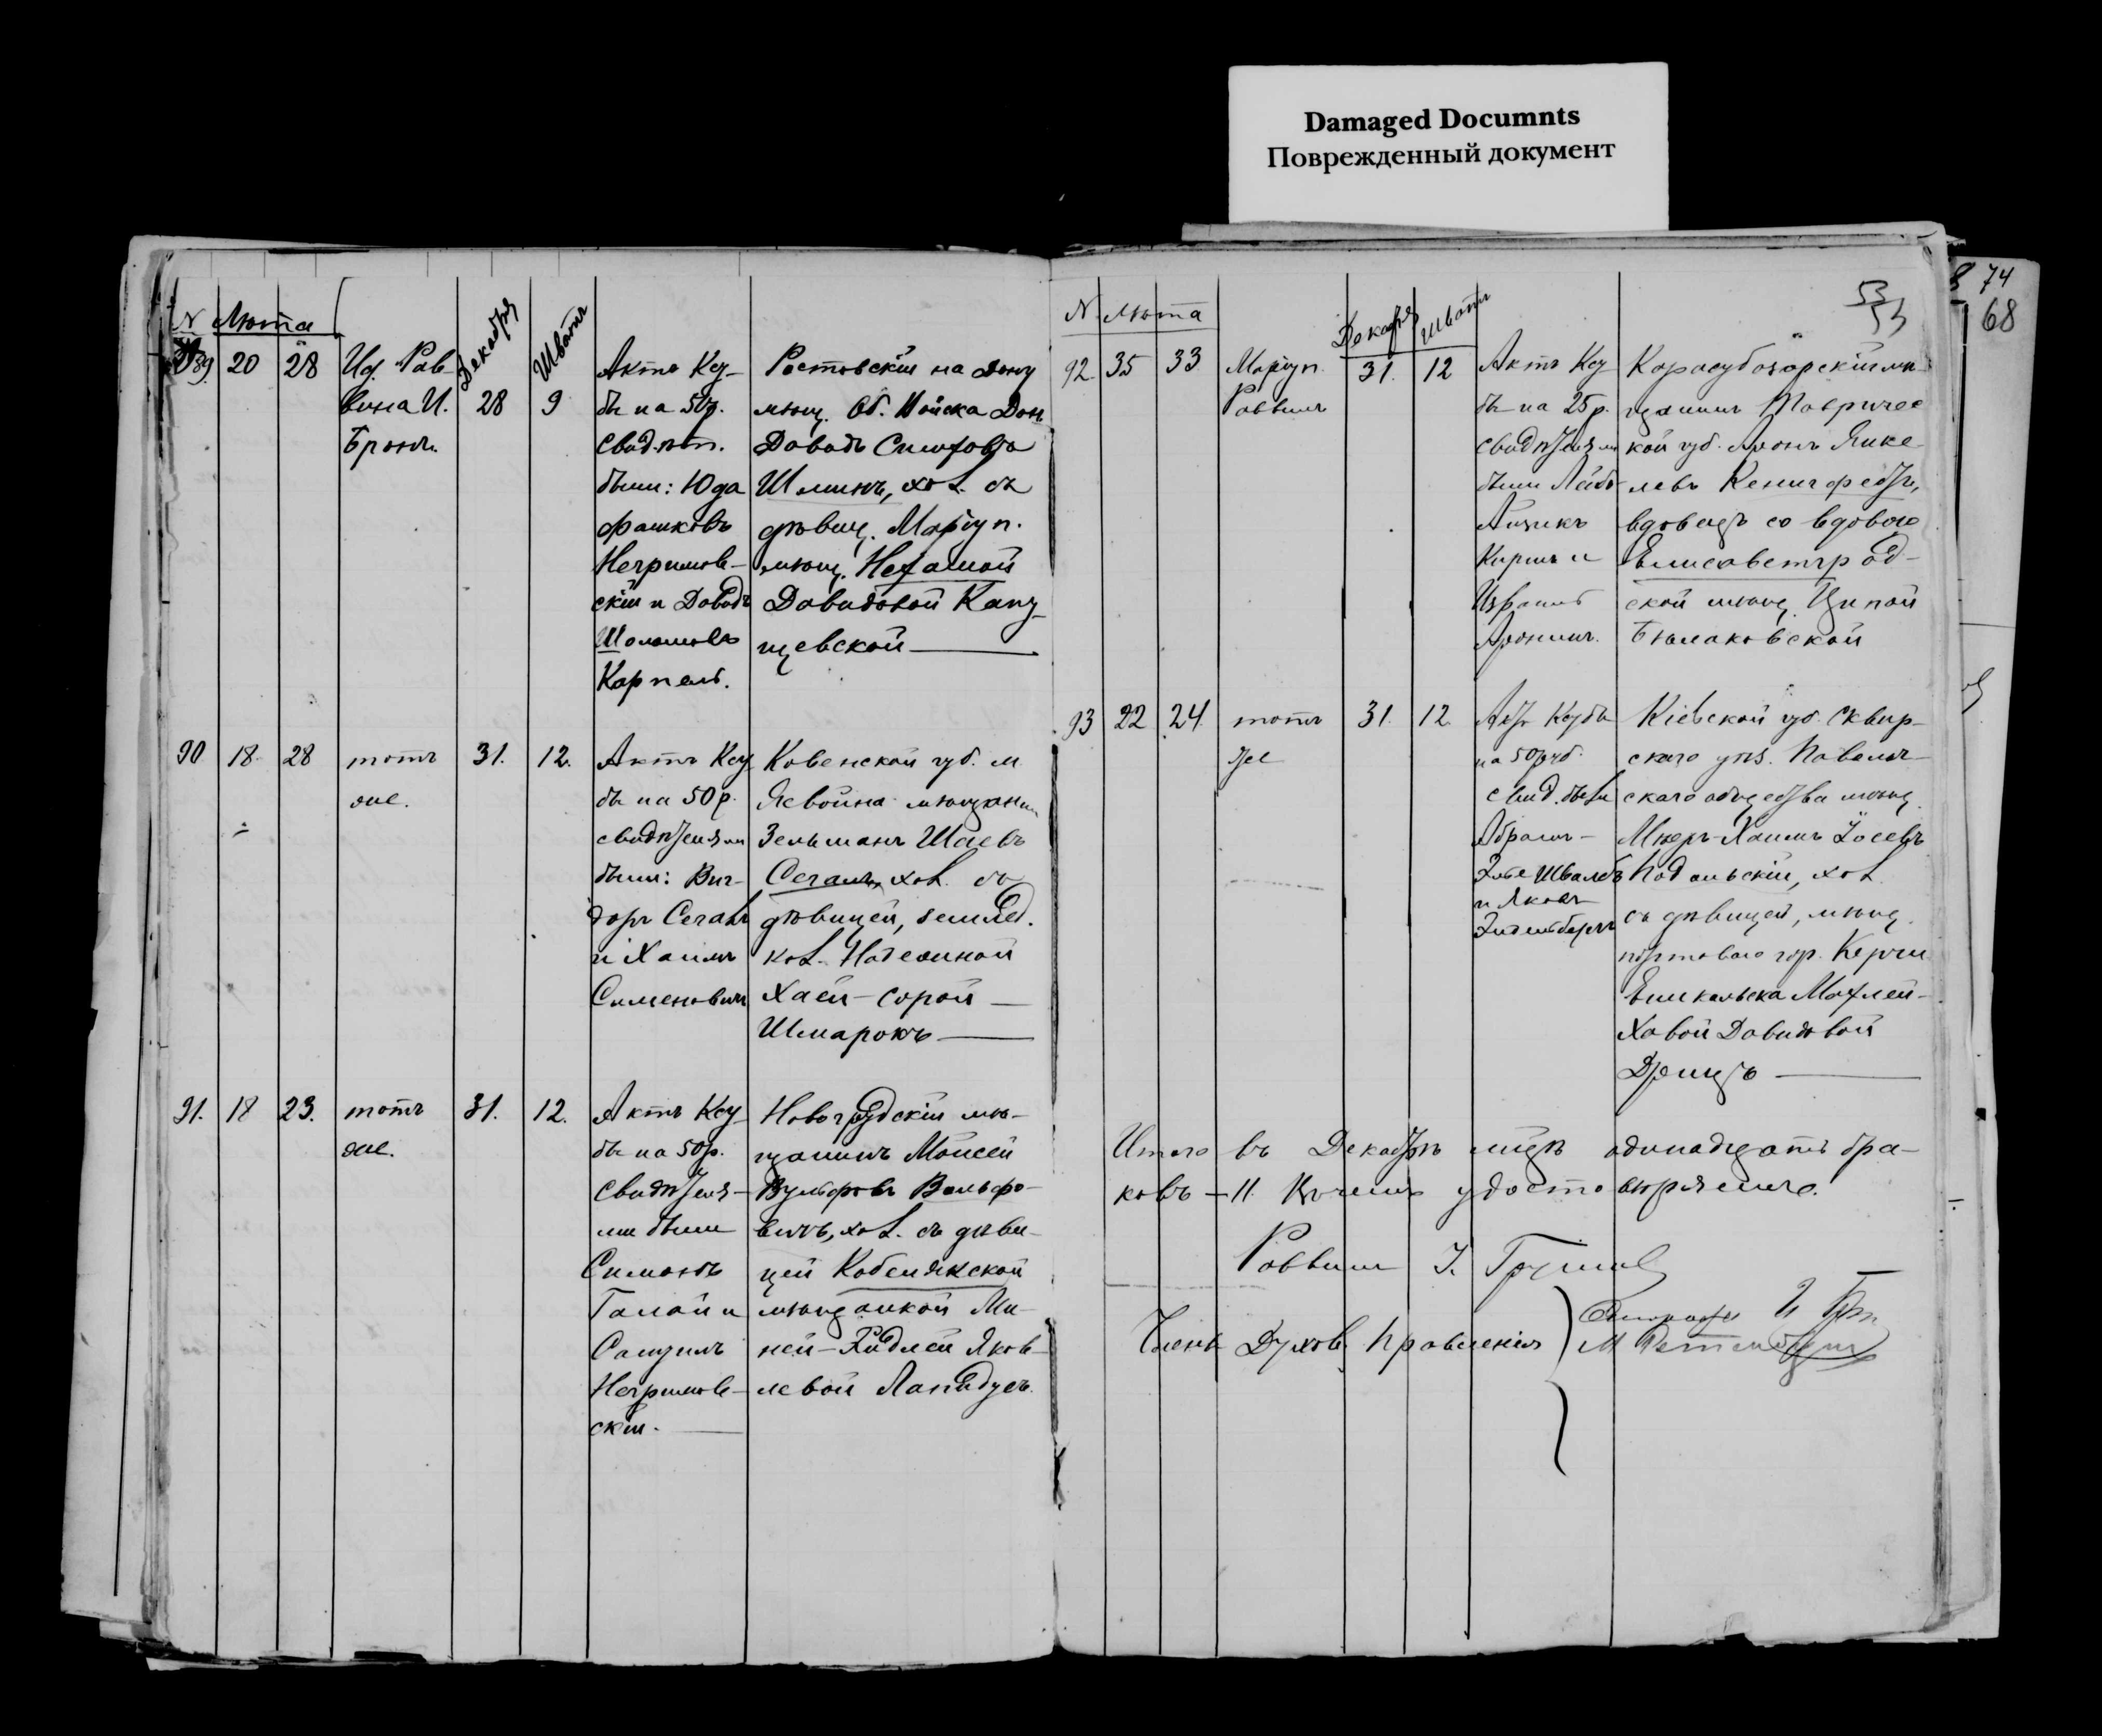 Damaged Documnts
Поврежденный документ
74
68
53
N Лѣта Декабря Шватъ
89. 20 28 Ид. Рав-
вина И. 28 9
Брона.
Актъ Ксу-
бы на 50р.
Свидѣт.
были: Юда
Негримов-
скій и Давидъ
Шоломовъ
Карпель.
Ростовскій на Дону
мѣщ. Об. Войска Дон
Давидъ Симховъ
Шминъ, хол. съ
дѣвиц. Маріуп.
мѣщ. Нехамой
Давидовой Капу-
щевской
90 18. 28 тотъ 31. 12.
же.
Актъ Ксу
бы на 50р.
свидѣтелями
были: Виг-
доръ Сегаль
и Хаимъ
Сименовичъ
Ковенской губ. м.
Ясвойна мѣщанинъ
Зельманъ Шаевъ
Сегаль, хол. съ
дѣвицей, землед.
кол. Надежной
Хаей-Сорой
Шмарокъ
91. 18 23. тотъ 31. 12.
же.
Актъ Ксу
бы на 50р.
Свидѣтеля-
ми были
Симонъ
Галай и
Самуилъ
Негримов-
скій.
Новогрудскій мѣ-
щанинъ Моисей
Вульфовъ Вольфо-
вичъ, хол. съ дѣви-
цей Кобелякской
мѣщанкой Ми-
ней-Гидлей Яков-
левой Лапидусъ.
N Лѣта Декабря Шватъ
92 35 33 Маріуп. 31. 12
Раввинъ
Актъ Ксу
бы на 25р.
свидѣтелями
были Лейб
Айзикъ
Киршъ и
Израиль
Аронинъ.
Карасубазарскій мѣ-
щанинъ Тавричес
кой губ. Аронъ Янке-
левъ Кенигфестъ,
вдовецъ со вдовою
Елисаветград-
ской мѣщ. Ципой
93 22 24. тотъ 31. 12
же
Актъ Ксубы
на 50руб.
свид. были
Абрамъ-
Эле Швалбъ
и Яковъ
Кіевской губ. Сквир-
скаго уѣз. Паволоч-
скаго общества мѣщ.
Мееръ-Хаимъ Іосевъ
Подольскій, хол.
съ дѣвицей, мѣщ.
портоваго гор. Керчи
Еникальска Махлей-
Ховой Давидовой
Итого въ Декабрѣ мцѣ одинадцать бра-
ковъ - 11. удостовѣряемъ.
Раввинъ
Члены Духов. Правленія